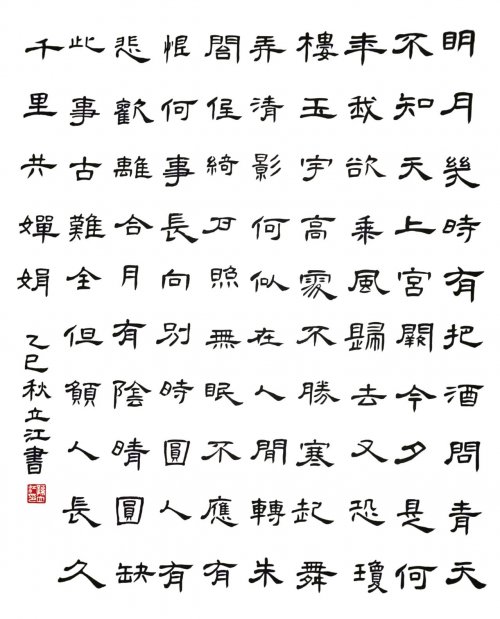 明月幾時有把酒問青天
不知天上宮闕今夕是何
年我欲乘風歸去又恐瓊
樓玉宇高處不勝寒起舞
弄清影何似在人間轉朱
閣低綺戶照無眠不應有
恨何事長向別時圓人有
悲歡離合月有陰晴圓缺
此事古難全但願人長久
千里共嬋娟
乙巳秋立江書